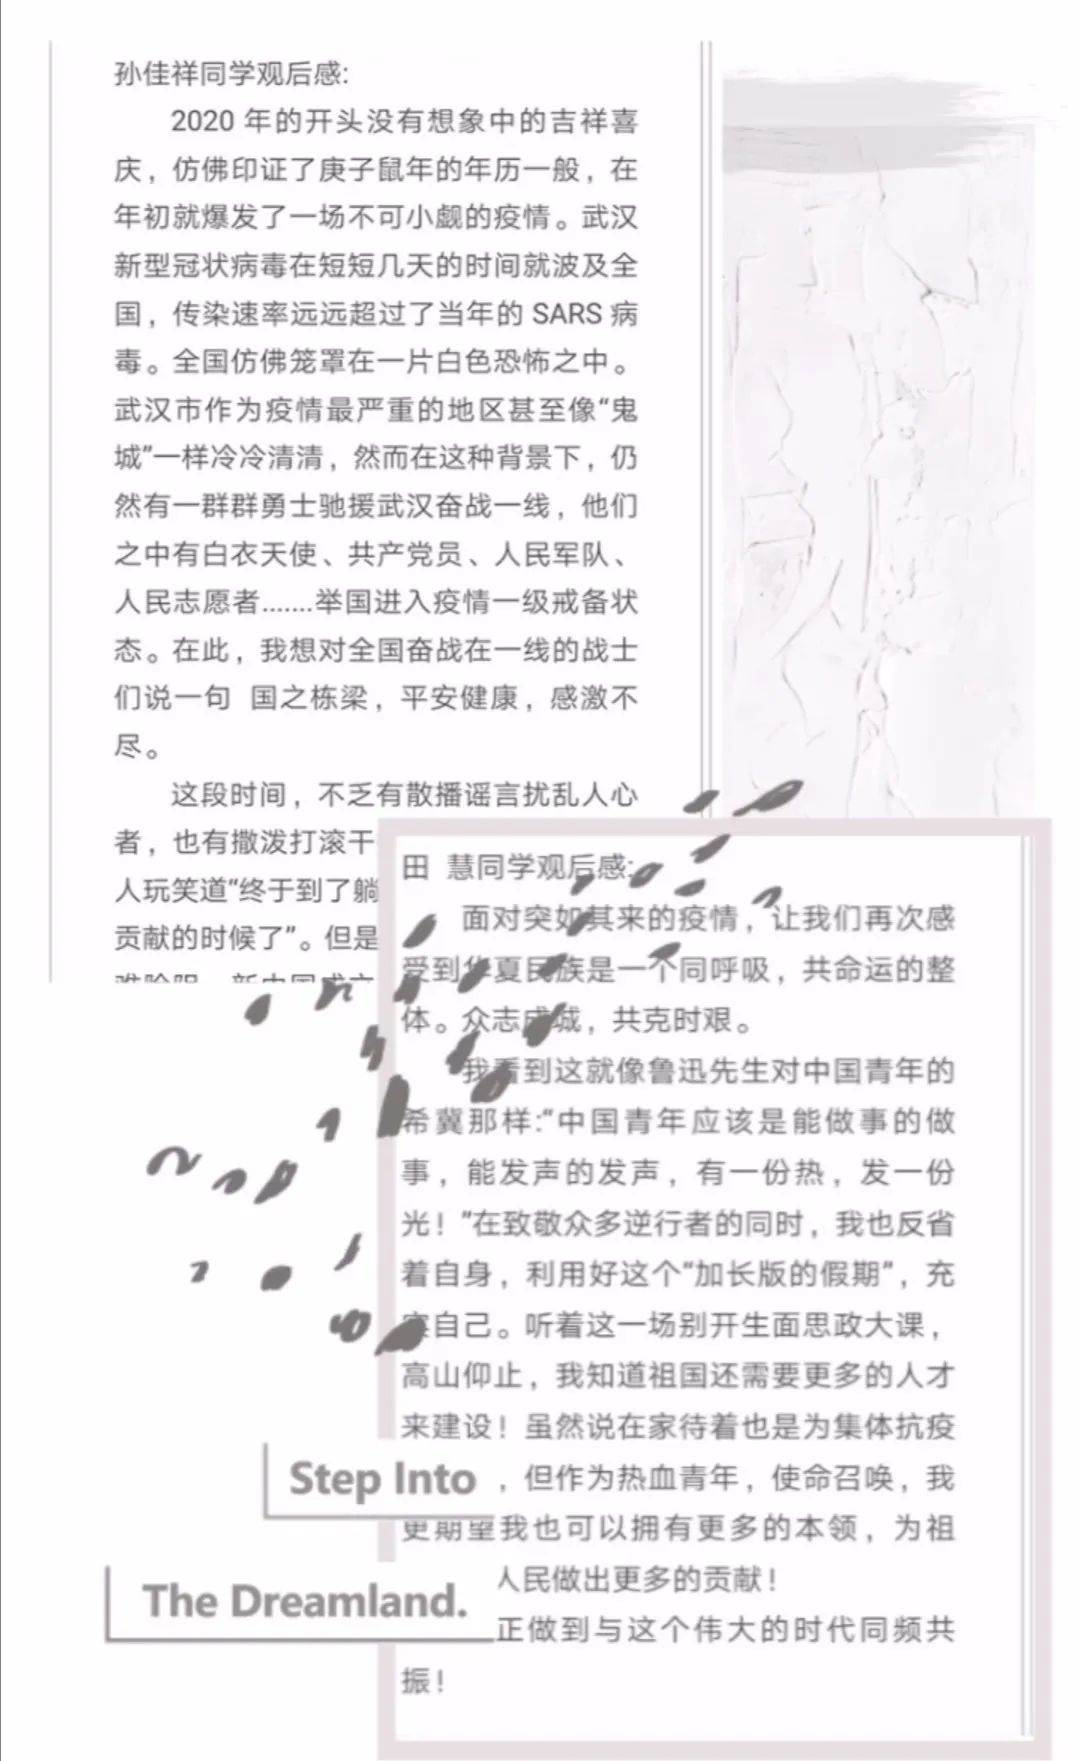 孙佳祥同学观后感:
2020 年的开头没有想象中的吉祥喜
庆，仿佛印证了庚子鼠年的年历一般，在
年初就爆发了一场不可小觑的疫情。武汉
新型冠状病毒在短短几天的时间就波及全
国，传染速率远远超过了当年的 SARS 病
毒。全国仿佛笼罩在一片白色恐怖之中。
武汉市作为疫情最严重的地区甚至像“鬼
城”一样冷冷清清，然而在这种背景下，仍
然有一群群勇士驰援武汉奋战一线，他们
之中有白衣天使、共产党员、人民军队、
人民志愿者.......举国进入疫情一级戒备状
态。在此，我想对全国奋战在一线的战士
们说一句  国之栋梁，平安健康，感激不
尽。
这段时间，不乏有散播谣言扰乱人心
者，也有撒泼打滚干
人玩笑道“终于到了躺
贡献的时候了”。但是
田  慧同学观后感:
面对突如其来的疫情，让我们再次感
受到华夏民族是一个同呼吸，共命运的整
体。众志成城，共克时艰。
我看到这就像鲁迅先生对中国青年的
希冀那样:“中国青年应该是能做事的做
事，能发声的发声，有一份热，发一份
光！”在致敬众多逆行者的同时，我也反省
着自身，利用好这个“加长版的假期”，充
实自己。听着这一场别开生面思政大课，
高山仰止，我知道祖国还需要更多的人才
来建设！虽然说在家待着也是为集体抗疫
，但作为热血青年，使命召唤，我
更期望我也可以拥有更多的本领，为祖
人民做出更多的贡献！
正做到与这个伟大的时代同频共
振！
Step Into
The Dreamland.